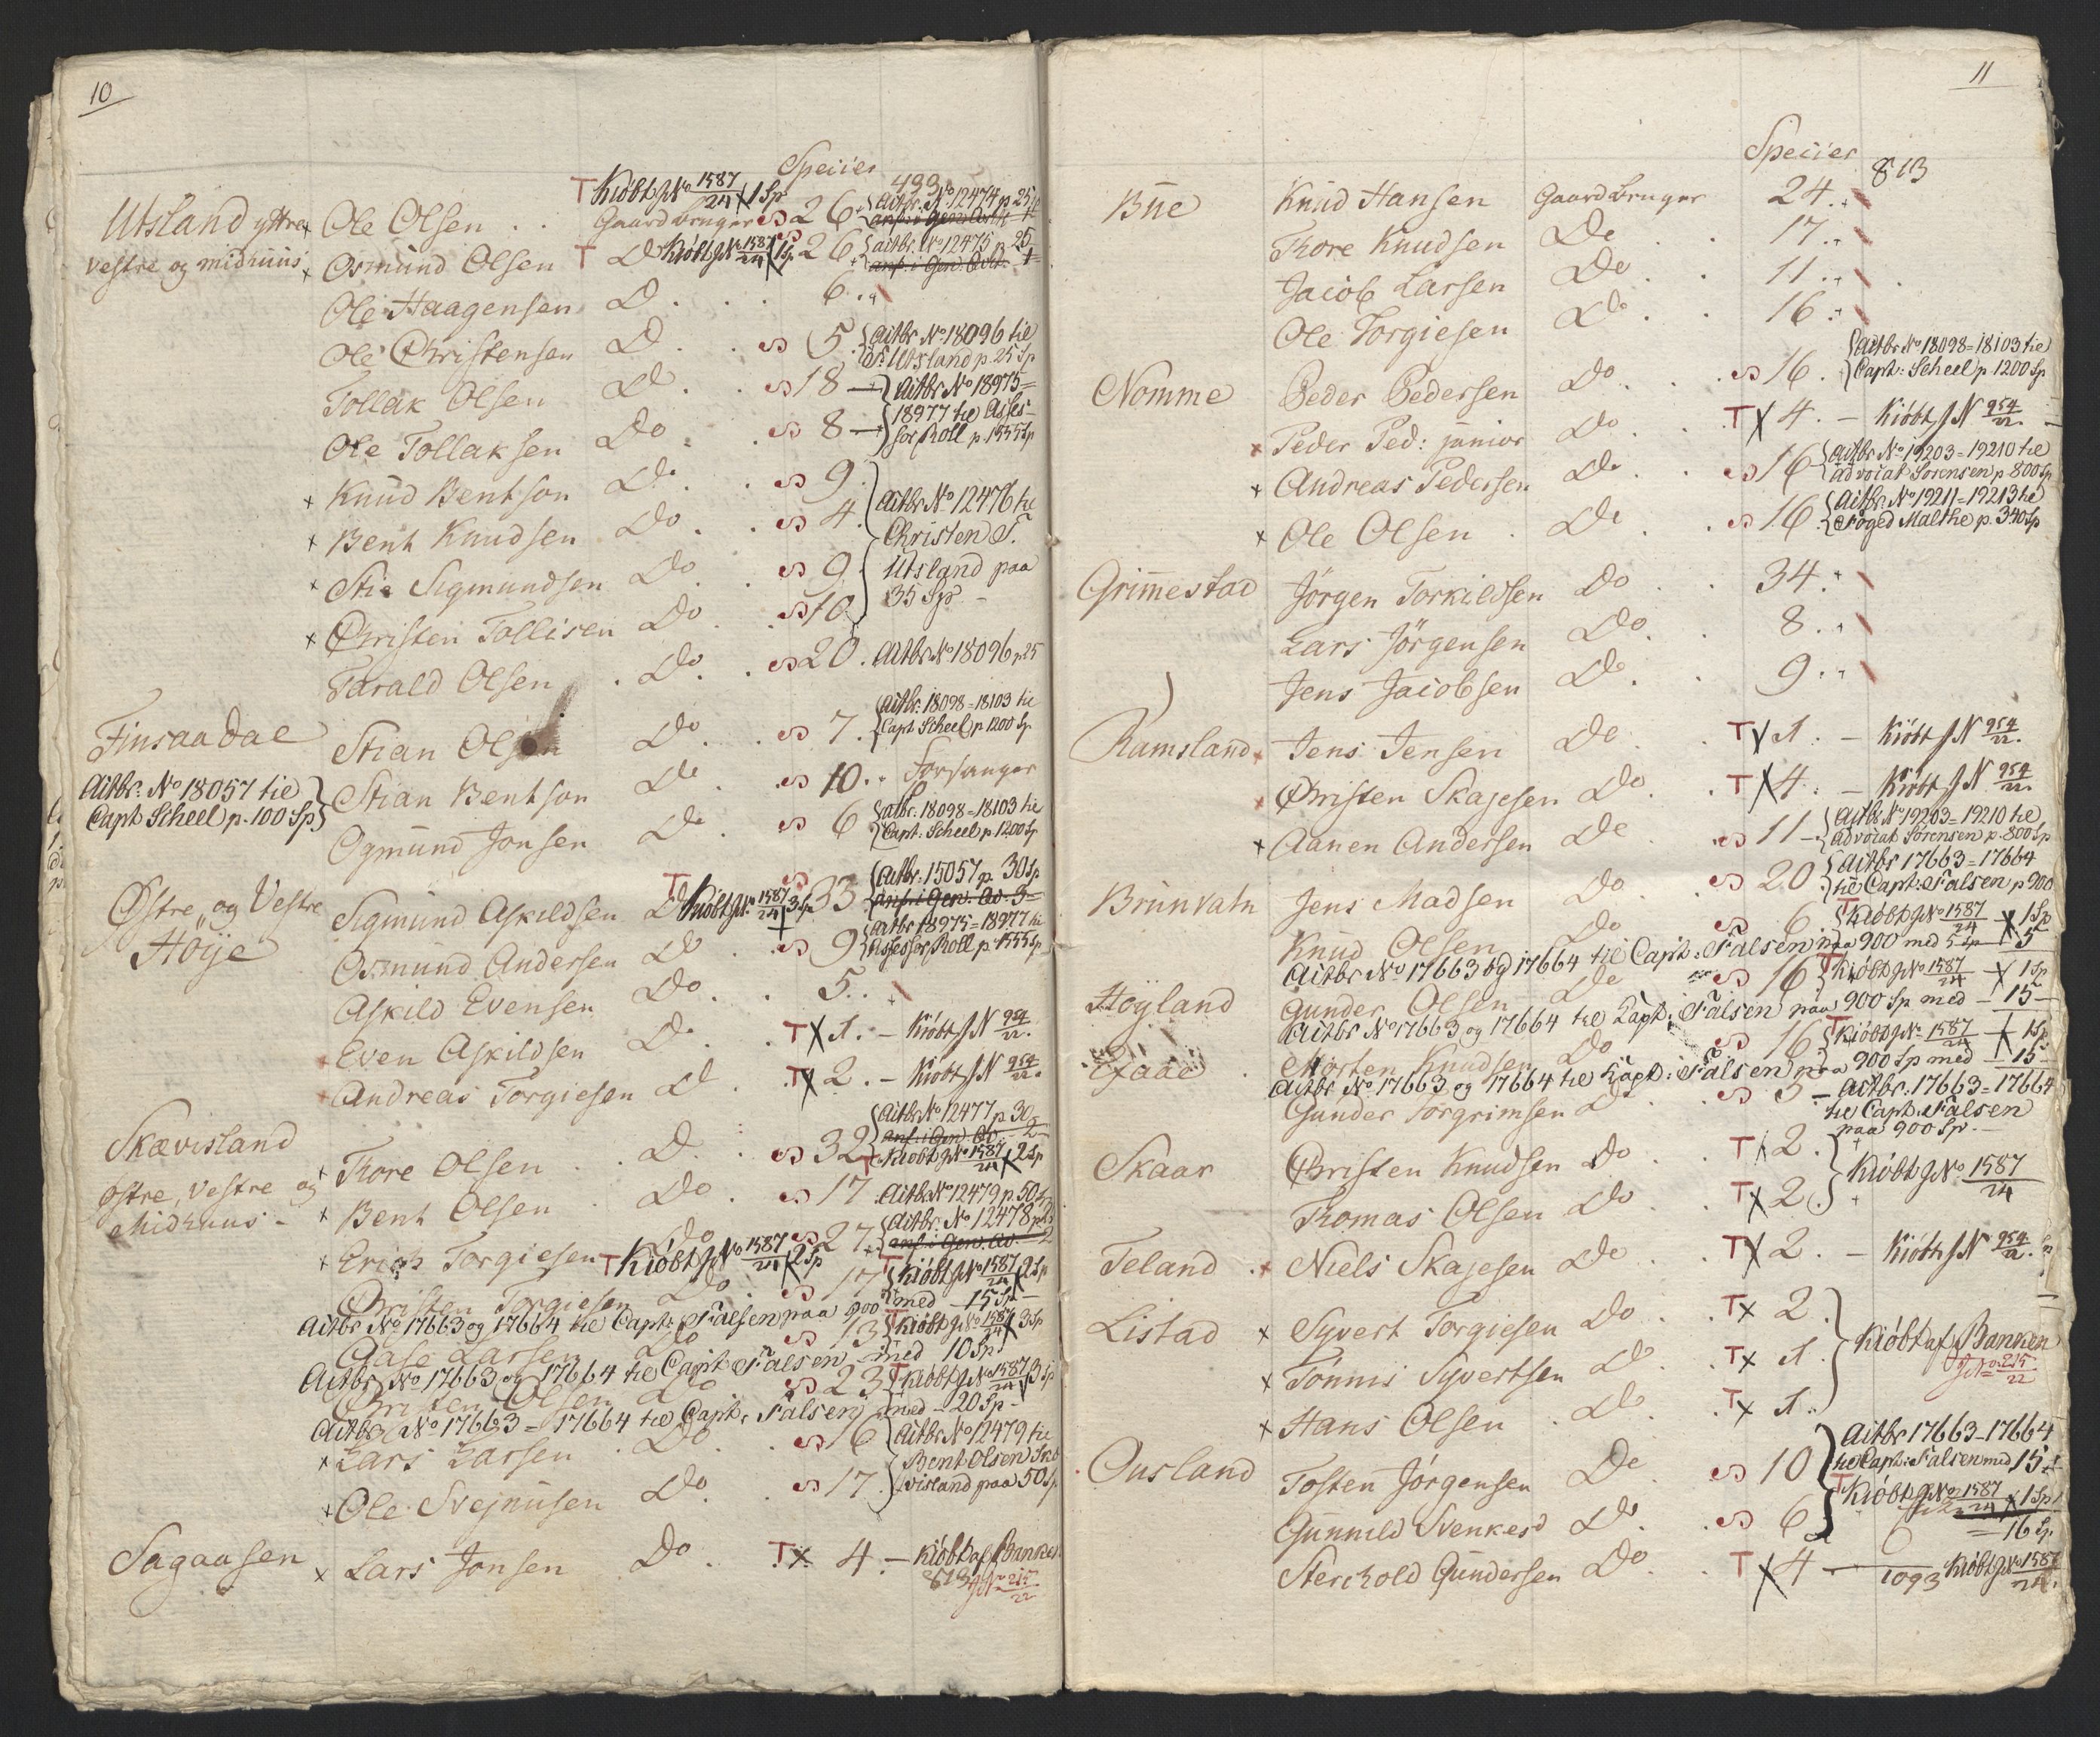 10
Species
493
T Kiöbt J No 1587/24 X 1 Sp
Utsland yttre x Ole Olsen . . Gaardbruger 26. { Actbr. No 12474 p 25
anf: i Gen:
vestre og midhuus x Osmund Olsen T Do Kiöbt J No 1587/24 X 1 Sp 26. { actbr. No 12475 p 25
anf: i Gen:
Ole Haagensen D . . . 6. "
Ole Christensen D . . 5. { Actbr No 18096 til
Utsland p. 25 Sp
Tollak Olsen D . . 18 — } Actbr No 18975 =
Ole Tollaksen Do . . 8 — } 18977 til Asses-
sor Roll p. 1555 Sp
x Knud Bentson Do . . 9.
x Bent Knudsen Do . . 4. } Actbr No 12476 til
Christen T.
x Stie Sigmundsen Do . . 9. Utsland paa
x Christen Tollisen Do . . 10. 35 Sp. –
Tarald Olsen . Do . . 20. Actbr No 18096 p 25
Finsaadal Stian Olsen Do . . 7. { Actbr. 18098 = 18103 til
Capt Scheel p. 1200 Sp
Actbr. No 18057 til
Capt Scheel p. 100 Sp } Stian Bentson Do . . 10. " Forsanger
Ogmund Jonsen Do . . 6 { actbr. 18098 = 18103 til
Capt. Scheel p 1200 Sp
Østre og Vestre Sigmund Askildsen T Do Kiöbt J No 1587/24 3 Sp 33. { Actbr. 15057 p. 30 Sp
anf: i Gen. 3 =
Höije Osmund Andersen Do . 9 { Actbr 18975 = 18977 til
Assessor Roll p. 1555 Sp
Askild Evensen Do . . 5. .
Even Askildsen D . . T X 1. – Kiöbt J N 954/22.
Andreas Torgiesen D . T X 2. – Kiöbt J N 954/22.
Skævisland Tore Olsen . . D . : 32 { Actbr No 12477 p 30
anf: i Gen. 2
T Kiöbt J No 1587/24 X 2 Sp
østre, vestre og
Midhuus – x Bent Olsen . Do . 17. Actbr No 12479 p. 50
x Erich Torgiesen T Kiöbt J No 1587/24 X 2 Sp Do 27. { Actbr. No 12478 p 25
anf: i Gen. 2
Christen Torgiesen Do 17 { T Kiöbt J No 1587/24 2 Sp
Actbr No 17663 og 17664 til Capt: Falsen paa 900 med – 15 Sp –
Aase Larsen Do 13 { T Kiöbt J No 1587/24 X 3 Sp
Actbr No 17663 og 17664 til Capt Falsen – med 10 Sp.
Christen Olsen Do 23 { T Kiöbt J No 1587/24 3 Sp
Actbr No 17663 = 17664 til Capt: Falsen med – 20 Sp –
x Lars Larsen . Do . . 16 { Actbr No 12479 til
Bent Olsen Skæ
x Ole Svejnusen Do . . 17. } visland paa 50 Sp
Sagaasen x Lars Jonsen Do . T X 4. – Kiöbt af Banken
813 J N 215/22
11
Species
813
Bue Knud Hansen Gaardbruger 24. "
Tore Knudsen Do . . 17. "
Jacob Larsen Do . . 11. "
Ole Torgiesen Do . . 16. "
Nomme Peder Pedersen Do . . 16. { Actbr No 18098 = 18103 til
Capt: Scheel p. 1200 Sp
x Peder Ped: junior Do . . T X 4. – Kiöbt J N 954/22. –
x Andreas Pedersen Do . . 16 { Actbr. No 19203 = 19210 til
advocat Sörensen p 800 Sp
x Ole Olsen . Do . . 16. { Actbr. No 19211 = 19213 til
Foged Malthe p. 340 Sp
Grimestad Jörgen Torkildsen Do . 34. "
Lars Jörgensen Do . . 8. "
Jens Jacobsen Do . . 9. "
Ramsland x Jens Jensen Do . . T X 1. – Kiöbt J N 954/22.
x Christen Skajesen Do . . T X 4. – Kiöbt J N 954/22.
x Aanen Andersen Do . 11 – { Actbr No 19203 = 19210 til
advocat Sörensen p. 800 Sp
Brunvatn Jens Madsen Do . 20 { Actbr 17663 = 17664
til Capt: Falsen p 900
Knud Olsen Do 6 { T Kiöbt J No 1587/24 – X 1 Sp
Actbr No 17663 og 17664 til Capt: Falsen paa 900 med 5 Sp – 5 –
Höyland Gunder Olsen Do 16 { T Kiöbt J No 1587/24 – X 1 Sp
Actbr No 17663 og 17664 til Capt: Falsen paa 900 Sp med – 15 –
Morten Knudsen Do 16 { T Kiöbt J No 1587/24 X 1 Sp
Actbr No 17663 og 17664 til Capt: Falsen paa 900 Sp med – 15 –
Gunder Torgrimsen Do . 5 – Actbr. 17663 = 17664
til Capt: Falsen
paa 900 Sp. –
Skaar Christen Knudsen Do . . T X 2. } Kiöbt J No 1587/24
Thomas Olsen Do . . T X 2.
Teland . x Niels Skajesen Do . . T X 2. – Kiöbt J N 954/22.
Listad x Syvert Torgiesen Do . . T x 2.
x Tönnis Syvertsen D . . T x 1. } Kiöbt af Banken
J N 215/22
x Hans Olsen . D . . T x 1.
Ousland Tosten Jörgensen Do . 10 } Actbr 17663 – 17664
til Capt: Falsen med 15
Gunnild Svenkesd Do . . 6 T Kiöbt J No 1587/24 X 1 Sp
= 16 Sp.
Sterchold Gundersen Do . . T X 4 – 1093 Kiöbt J No 1587/24.